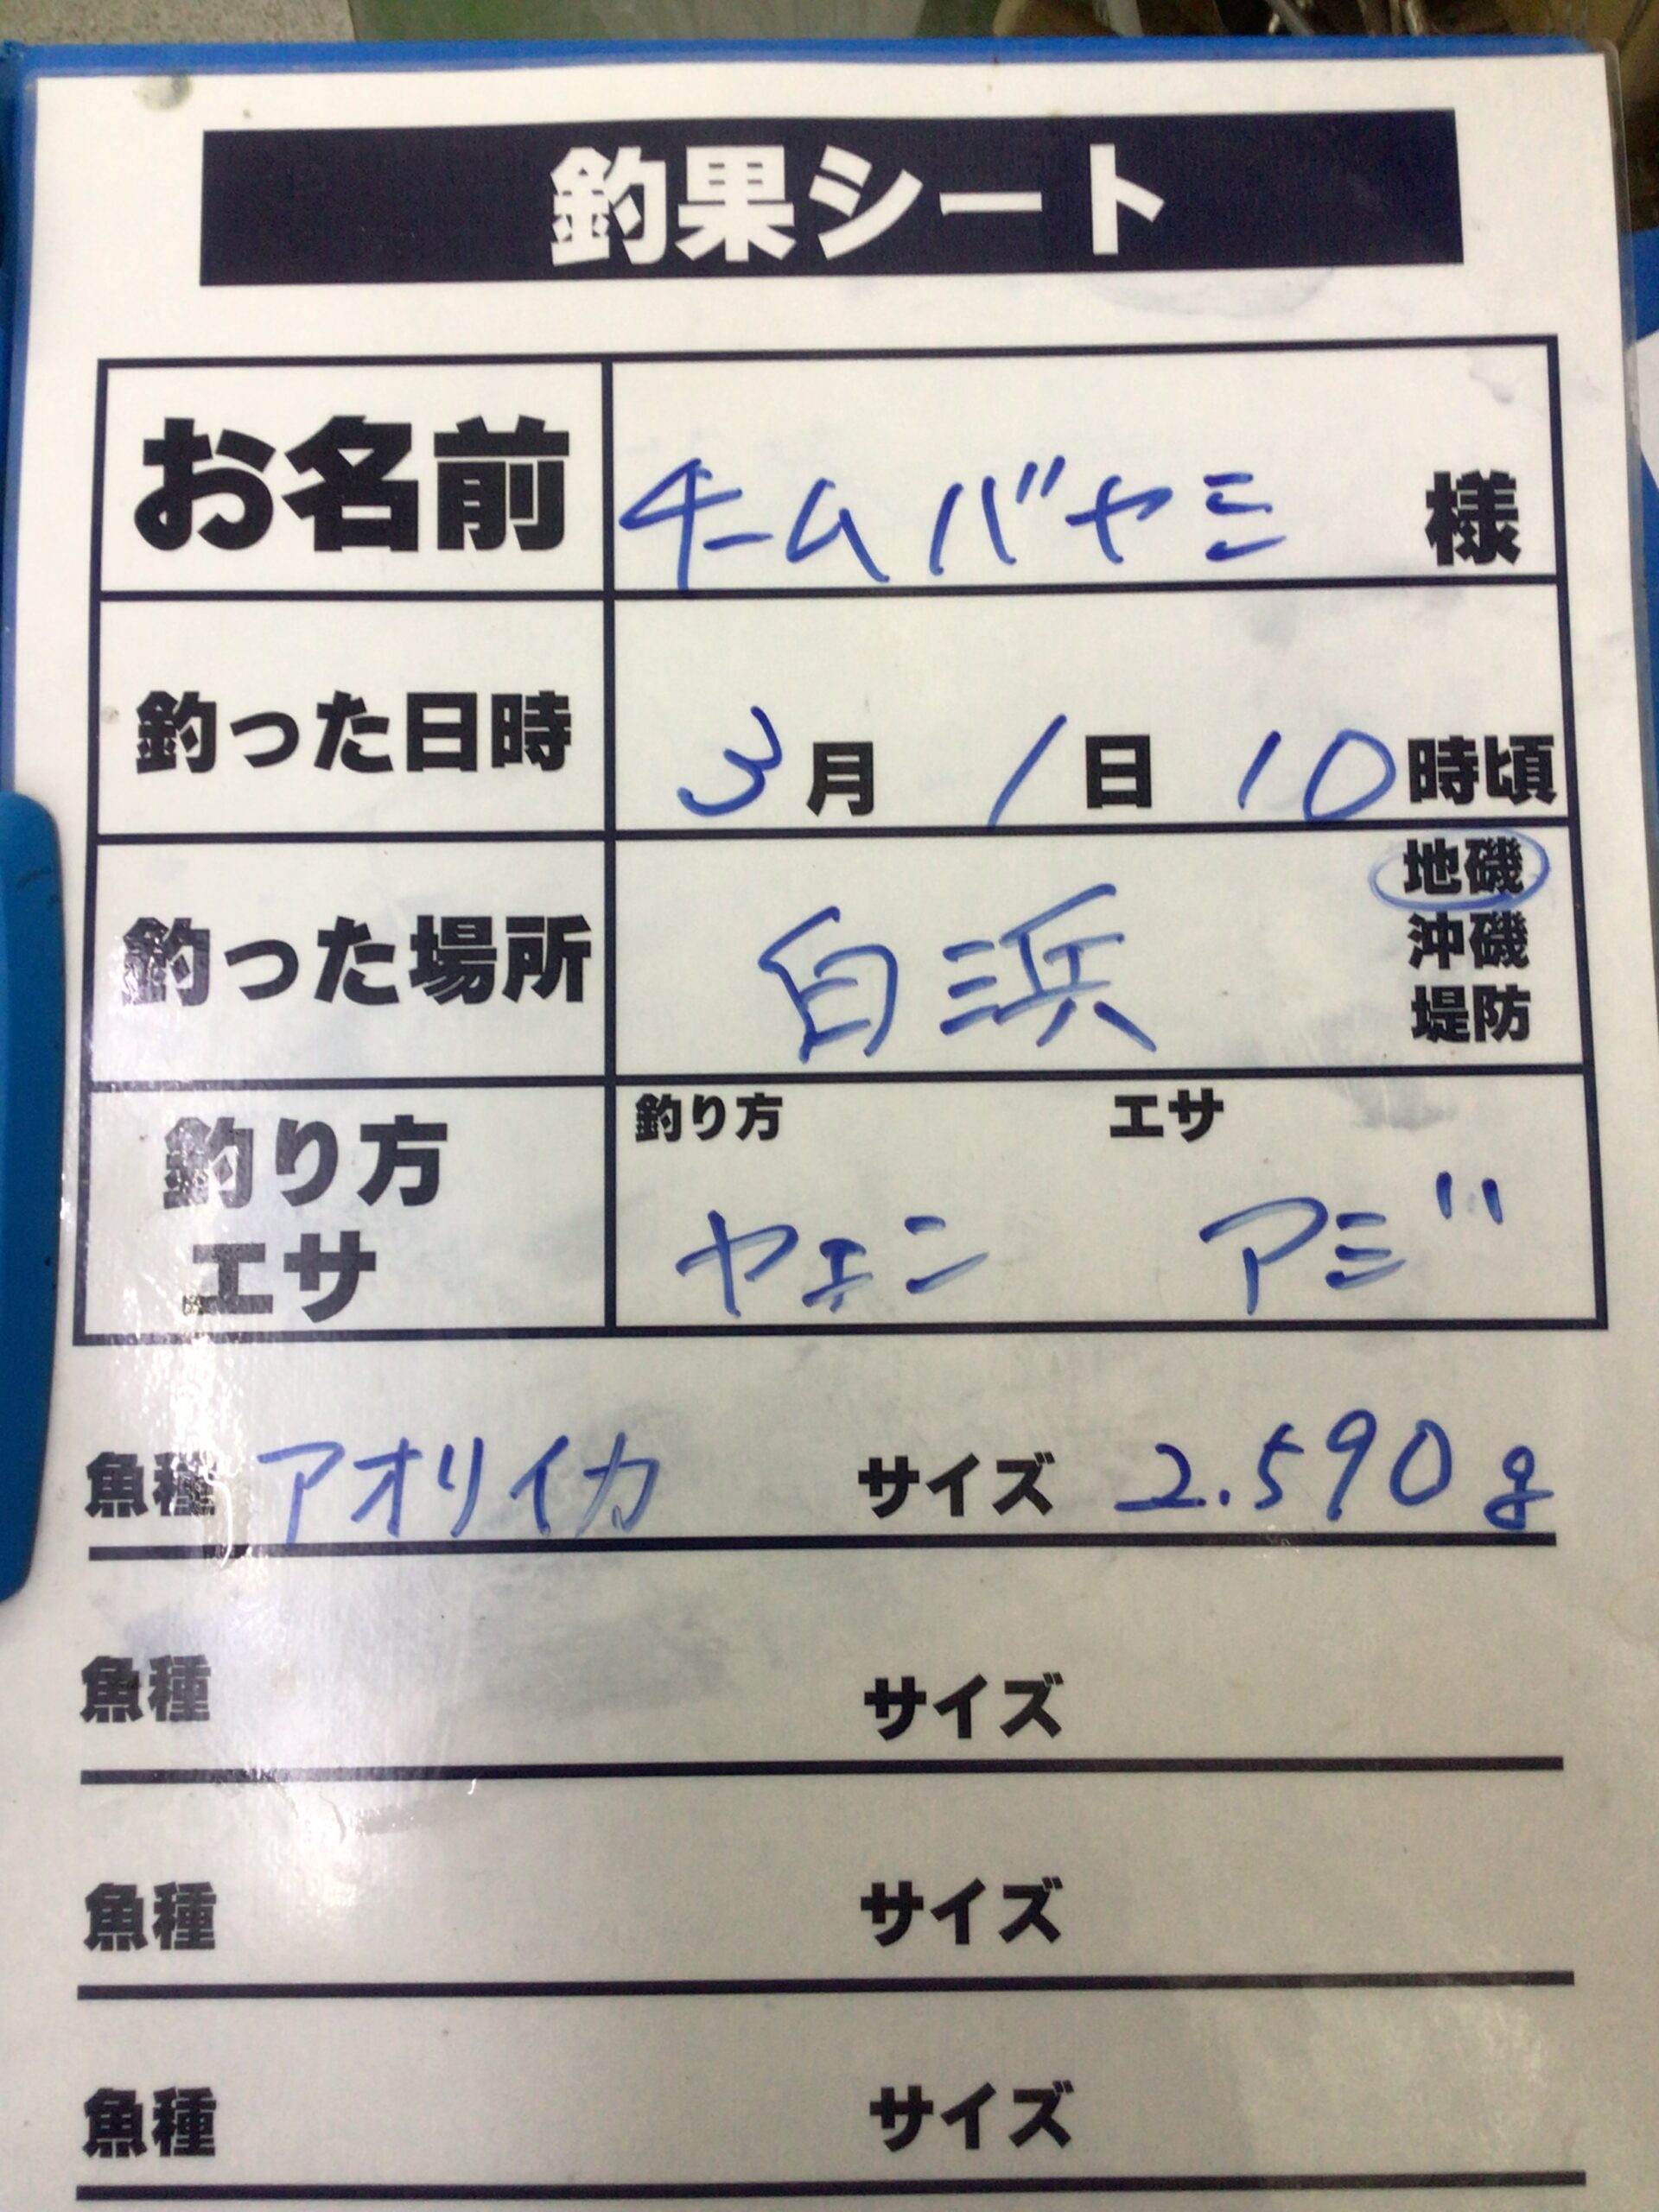 釣果シート
お名前 チームバヤシ 様
釣った日時 3月 1日 10時頃
釣った場所 白浜 地磯
沖磯
堤防
釣り方 エサ
釣り方 エサ ヤエン アジ
魚種 アオリイカ サイズ 2.590g
魚種 サイズ
魚種 サイズ
魚種 サイズ